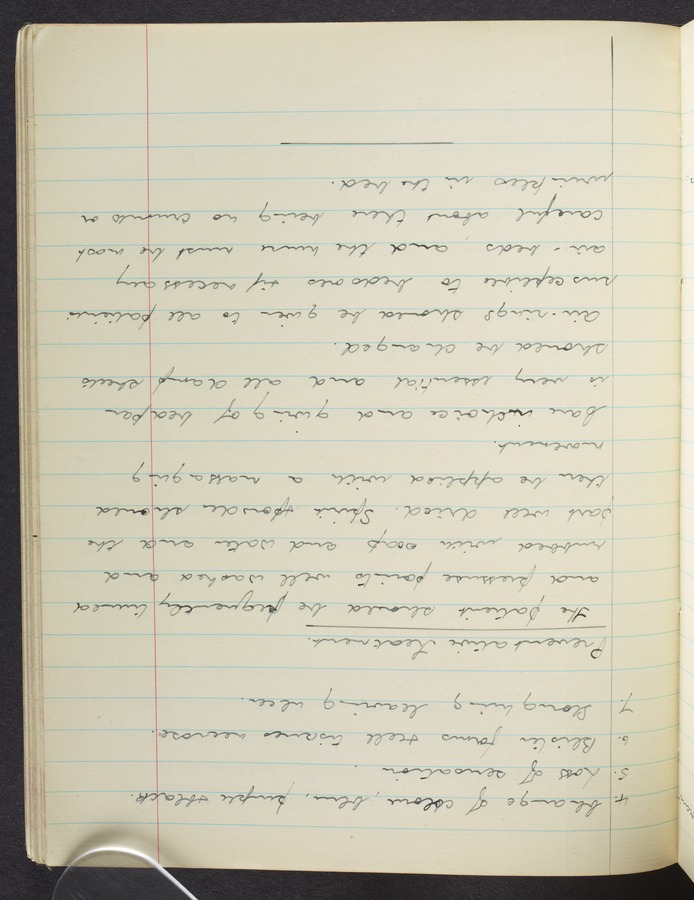 4. Change of colour, blue, purple & black.
5. Loss of sensation.
6. Blister forms & cell tissues necrose.
7. Sloughing leaving ulcer.
Preventative Treatment.
The patient should be frequently turned
and pressure points well washed and
rubbed with soap and water and the
part well dried. Spirit & powder should
then be applied with a massaging
movement.
Care in choice and giving of bedpan
is very essential and all damp sheets
should be changed.
Air-rings should be given to all patients
susceptible to bedsores & if necessary
air-beds, and the nurse must be most
careful about there being no crumbs or
wrinkles in the bed.